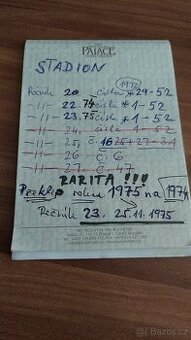 PALACE
STADION
1972
Ročník 20. čísla * 29-52
-11- 22. 74 čísla * 1-52
-11- 23. 75 čísla * 1-52
-11- 24. čísla 1-52
-11- 25. č. 16 25 + 27-31
-11- 26 č. 6
-11- 27. č. 47
RARITA !!!
Překlep roku 1975 na 1974
Ročník 23. 25.11.1975
Bazoš.cz